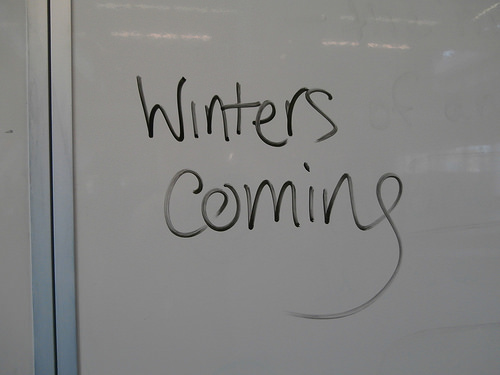 Winters
Coming